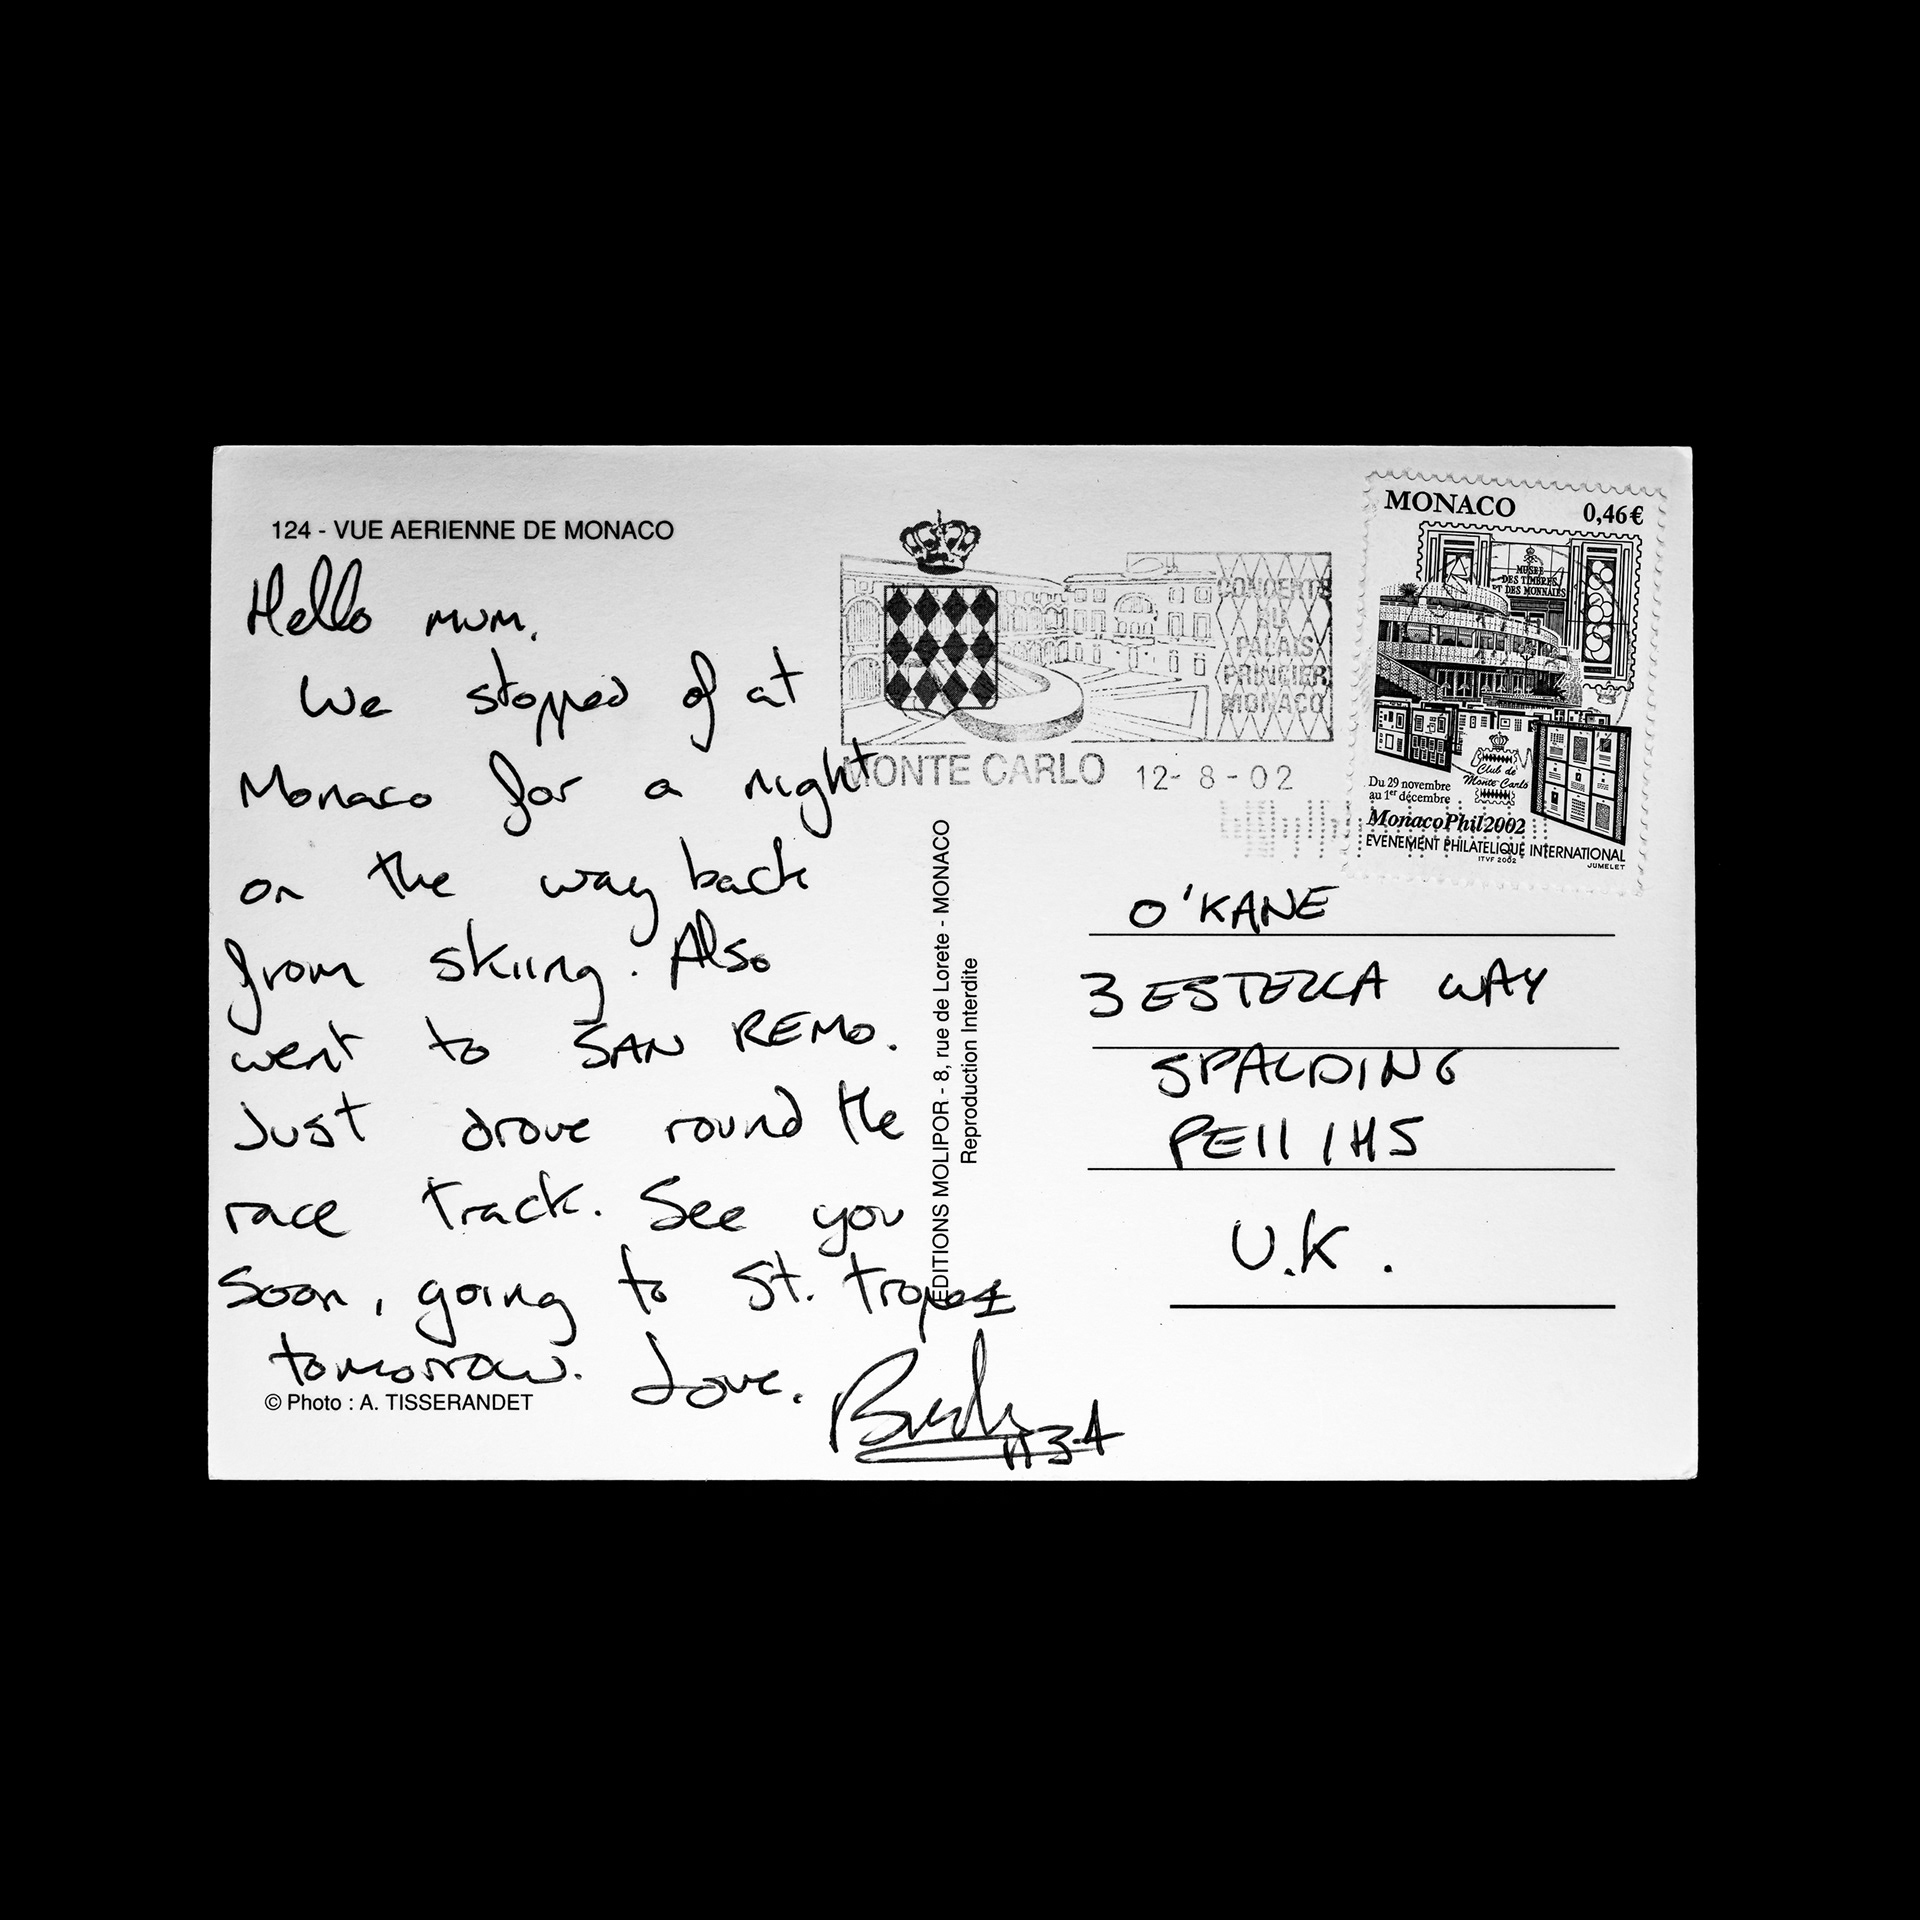 124 - VUE AERIENNE DE MONACO
Hello mum.
We stopped of at
Monaco for a night
on the way back
from skiing. Also
went to SAN REMO.
Just drove round the
race track. See you
soon, going to St. Tropez
tomorrow. Love.
© Photo : A. TISSERANDET
EDITIONS MOLIPOR - 8, rue de Lorete - MONACO
Reproduction Interdite
CONCERTS
AU
PALAIS
PRINCIER
MONACO
MONTE CARLO 12-8-02
MONACO 0,46€
MUSEE
DES TIMBRES
ET DES MONNAIES
Club de
Monte-Carlo
Du 29 novembre
au 1er décembre
MonacoPhil2002
EVENEMENT PHILATELIQUE INTERNATIONAL
ITVF 2002
JUMELET
O'KANE
3 ESTELLA WAY
SPALDING
PE11 1HS
U.K.